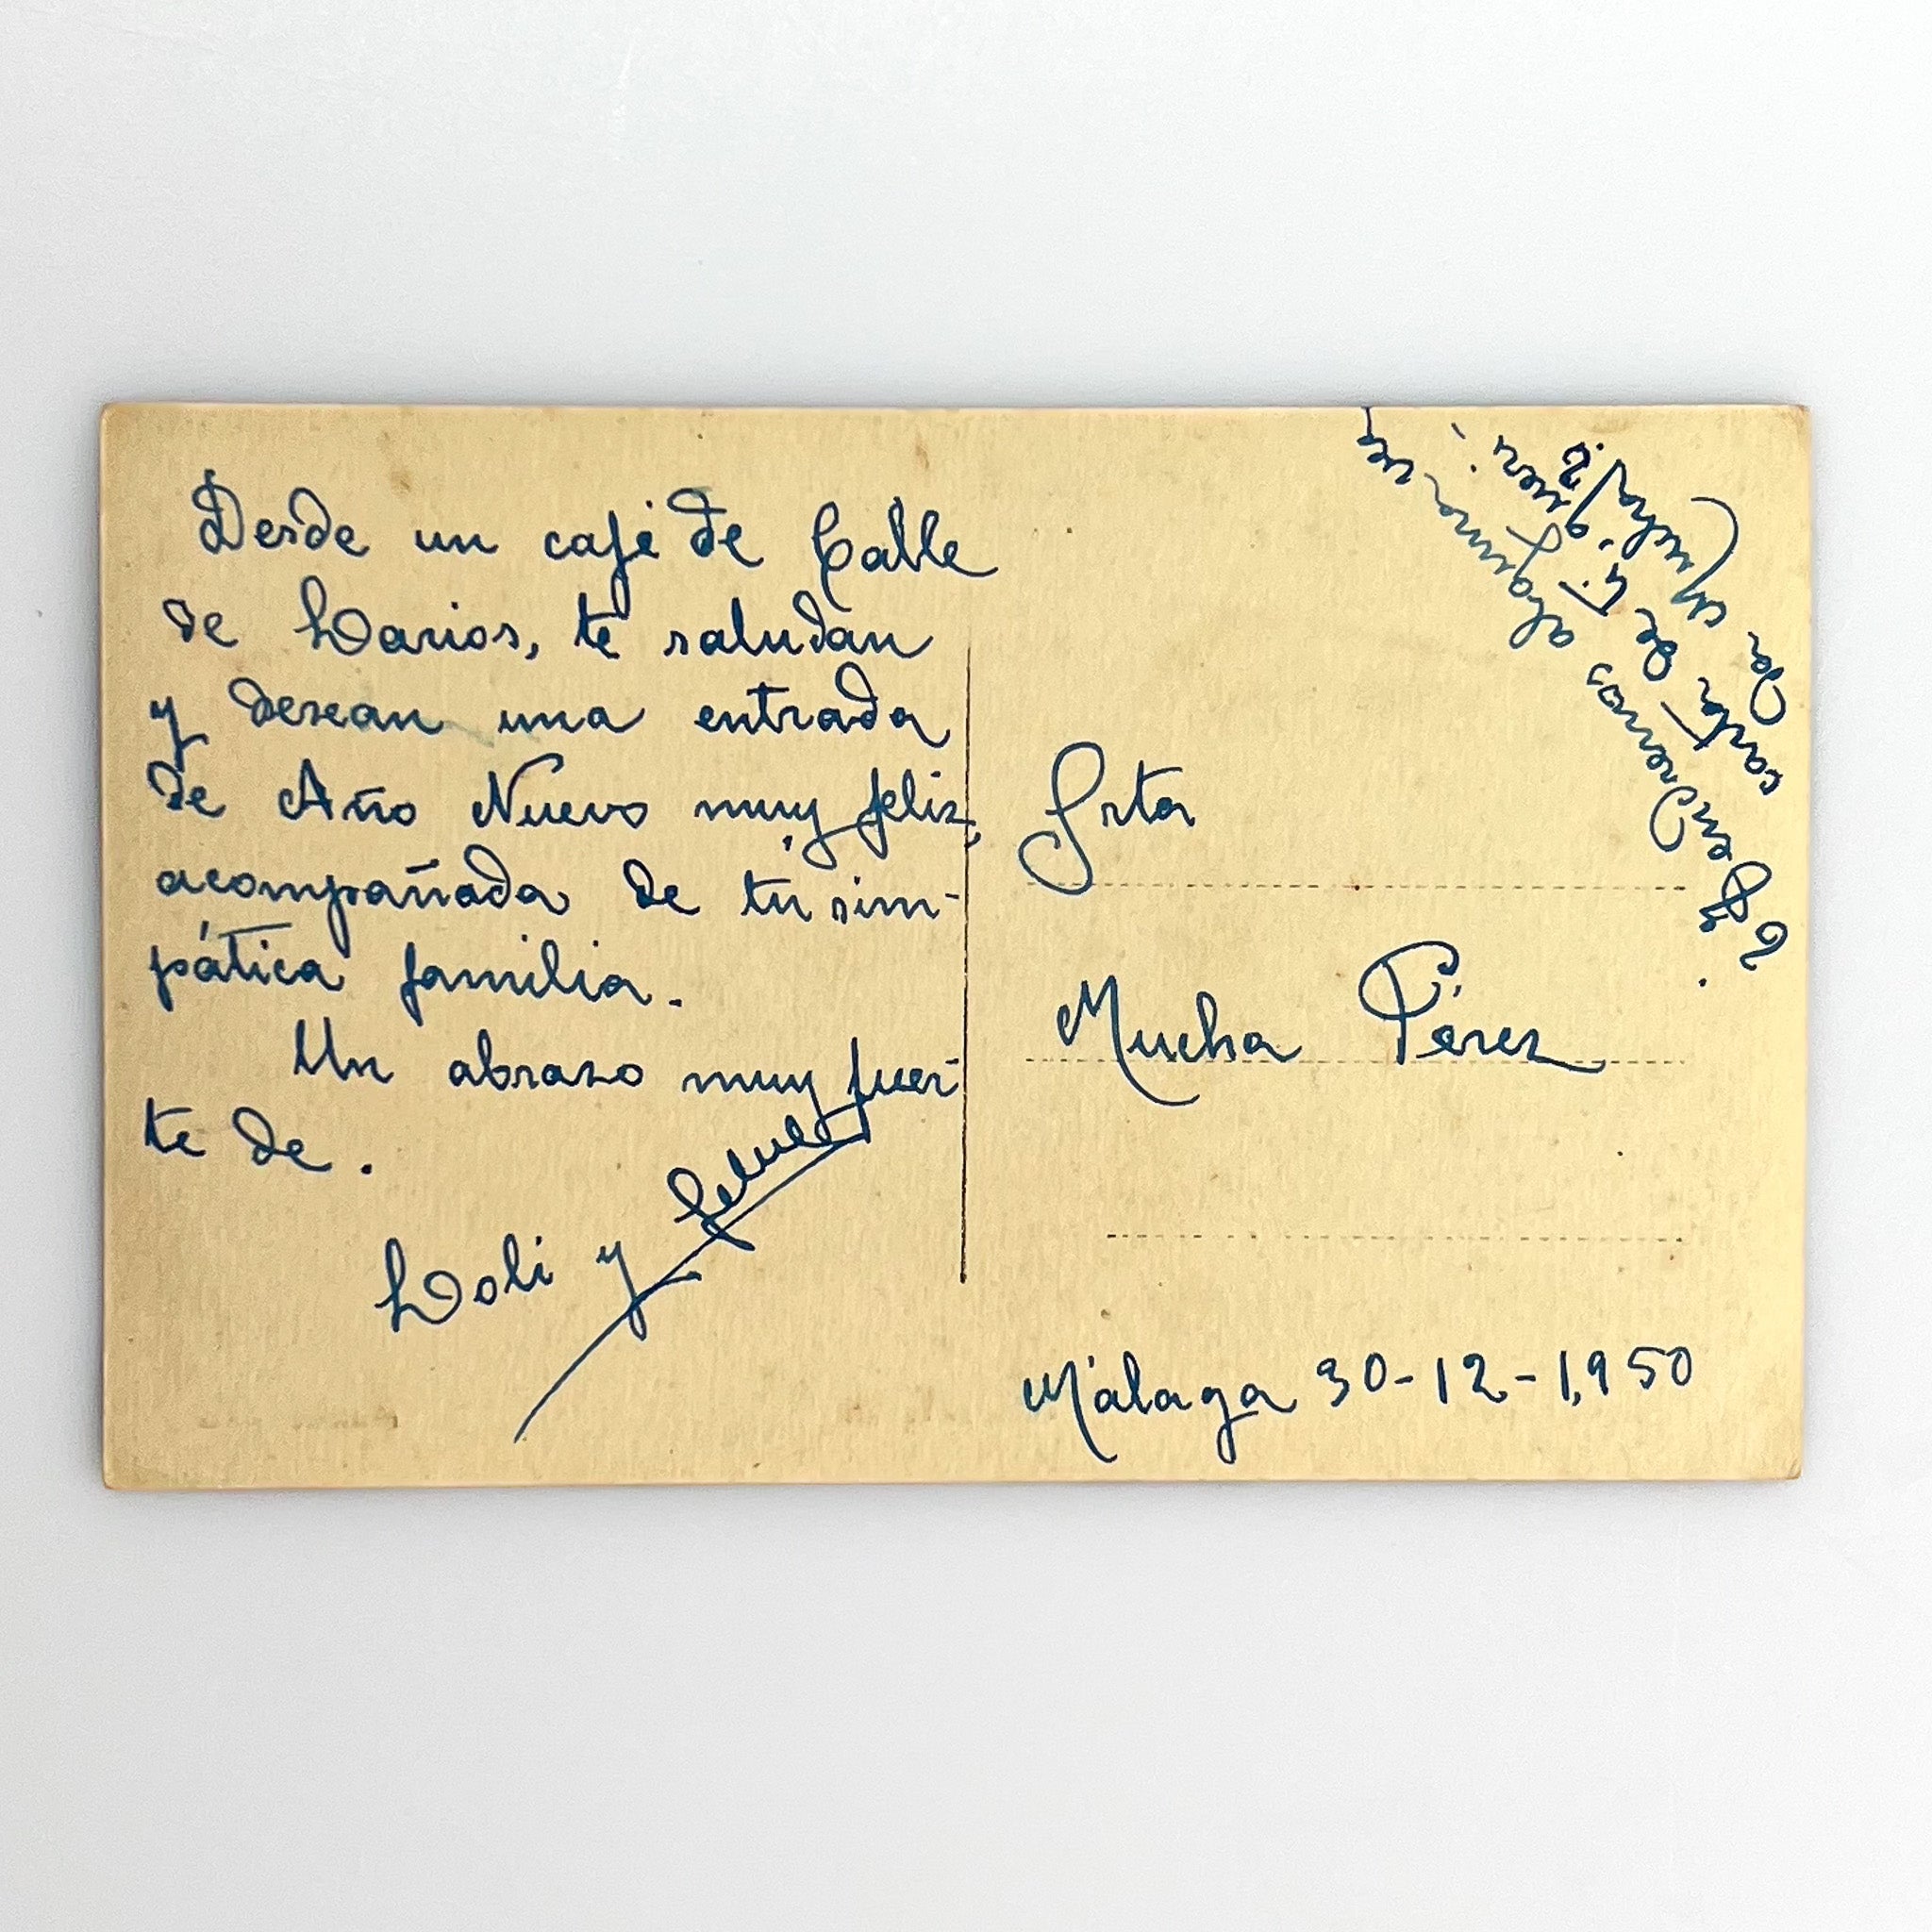 Desde un café de Calle
de Larios, te saludan
y desean una entrada
de Año Nuevo muy feliz,
acompañada de tu sim-
pática familia.
Un abrazo muy fuer-
te de.
Loli y
Srta
Mucha Pérez
Málaga 30-12-1,950
Esperemos alguna vez
carta de ti.
Mucha